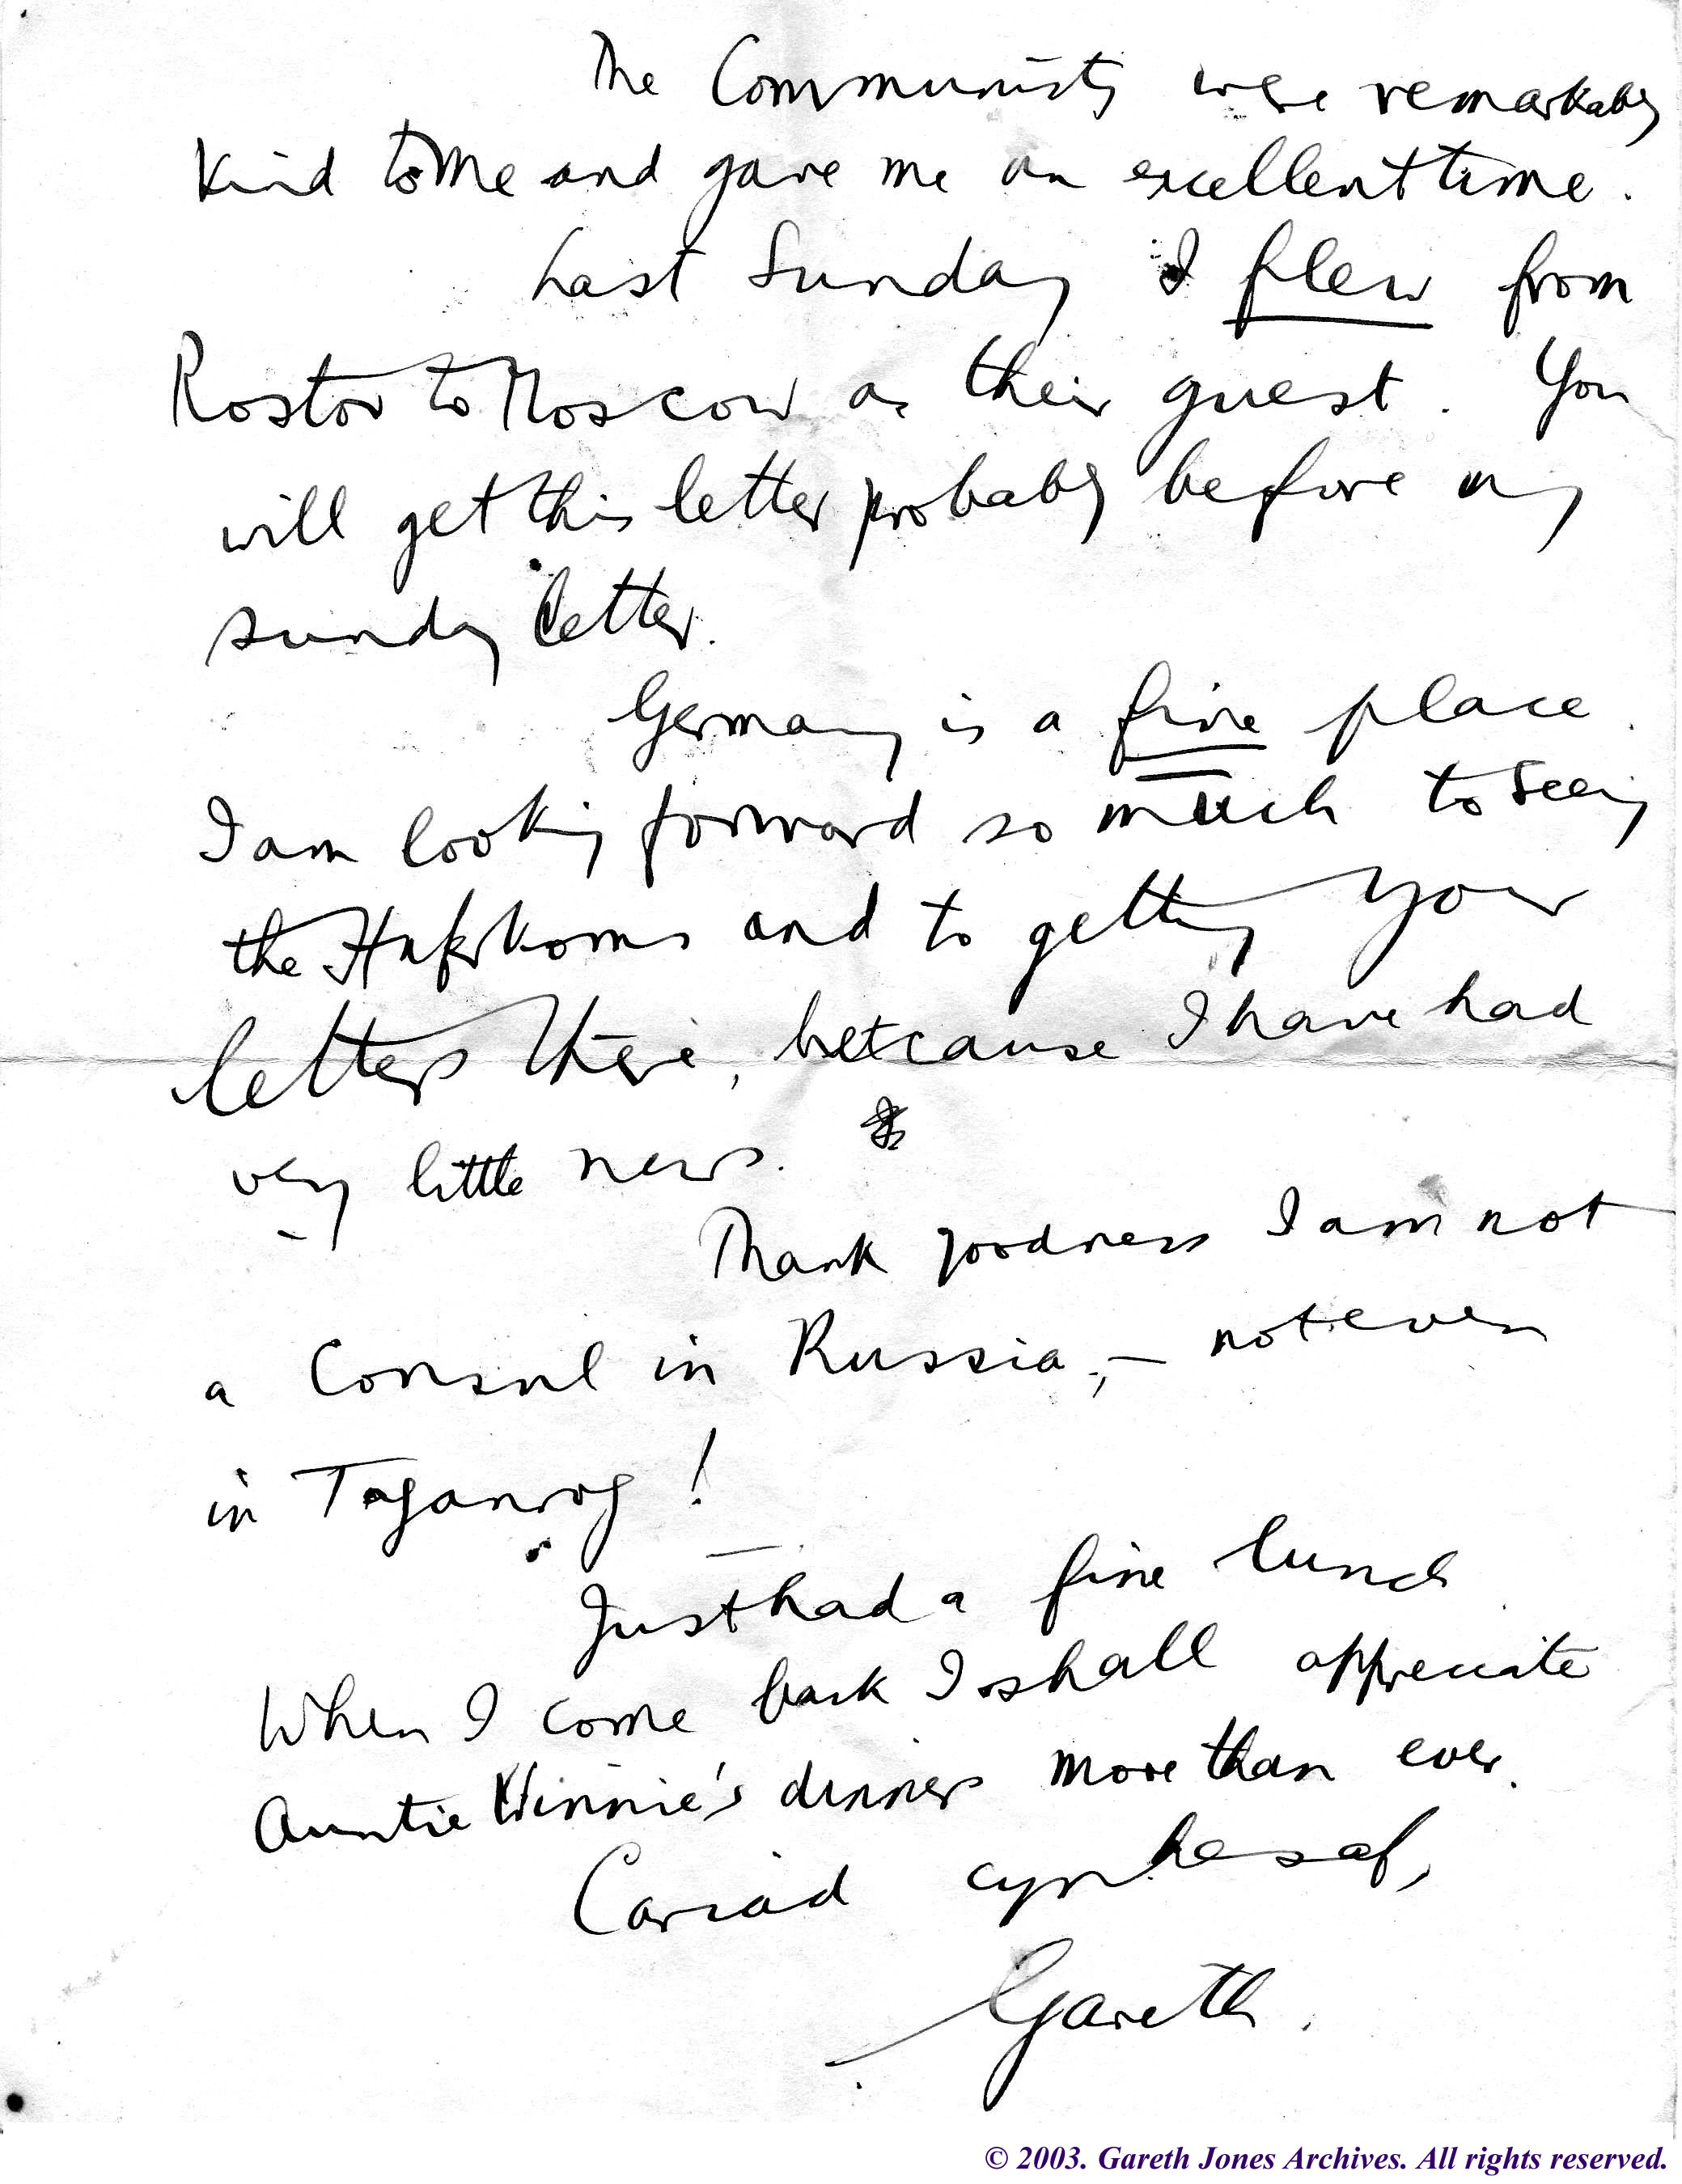 The Communists were remarkably
kind to me and gave me an excellent time.
Last Sunday I flew from
Rostov to Moscow as their guest. You
will get this letter probably before my
Sunday letter.
Germany is a fine place.
I am looking forward so much to seeing
the Haferkorns and to getting your
letters there, because I have had
very little news.
Thank goodness I am not
a Consul in Russia, – not even
in Taganrog!
Just had a fine lunch.
When I come back I shall appreciate
Auntie Winnie's dinners more than ever.
Cariad cynhesaf,
Gareth.
© 2003. Gareth Jones Archives. All rights reserved.